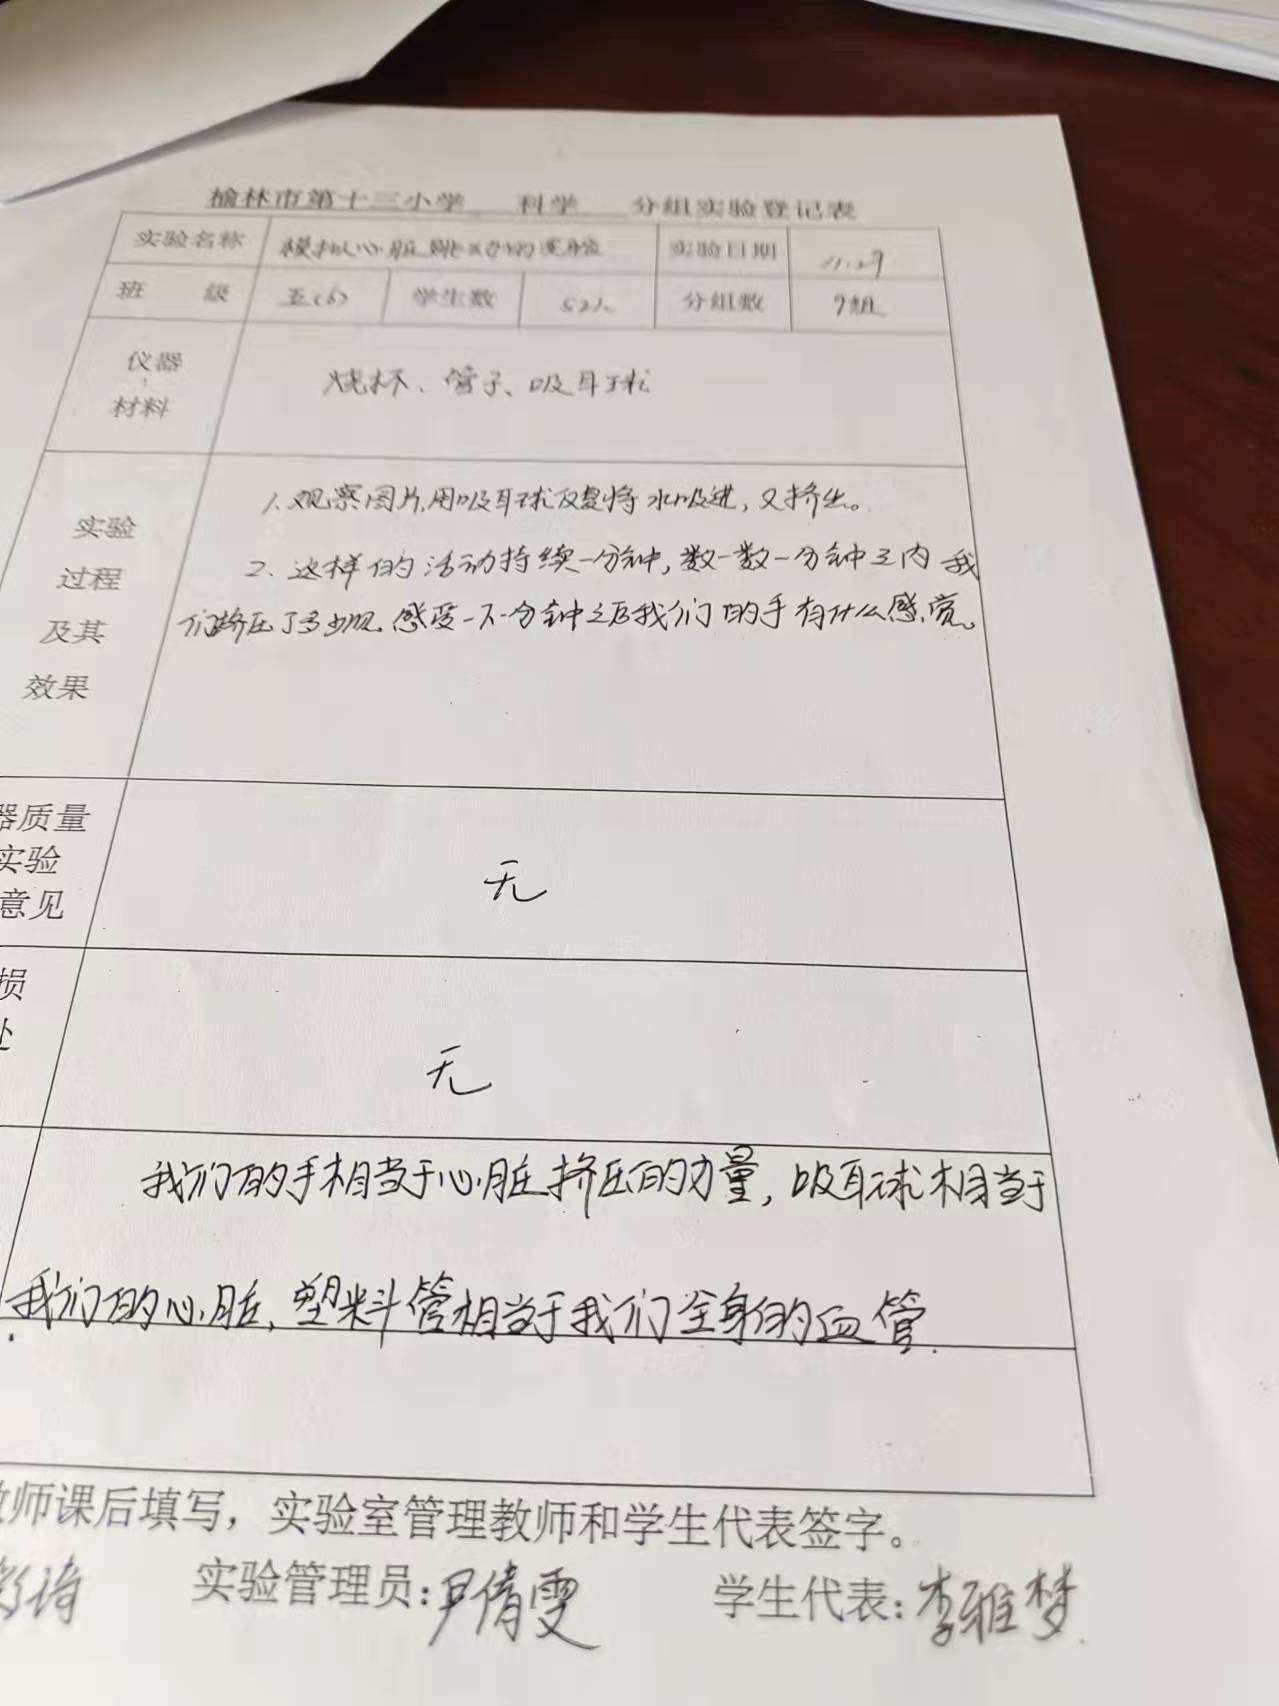 榆林市第十三小学 科学 分组实验登记表
实验名称 模拟心脏跳动的实验 实验日期 11.29
班 级 五(6) 学生数 52人 分组数 9组
仪器、材料 烧杯、管子、吸耳球
实验过程及其效果
1.观察图片,用吸耳球反复将水吸进,又挤出。
2.这样的活动持续一分钟,数一数一分钟之内我
们挤压了多少次,感受一下一分钟之后我们的手有什么感觉。
器质量
实验
意见
无
损
处
无
我们的手相当于心脏挤压的力量,吸耳球相当于
我们的心脏,塑料管相当于我们全身的血管.
教师课后填写,实验室管理教师和学生代表签字。
诗 实验管理员:尹倩雯 学生代表:李雅梦